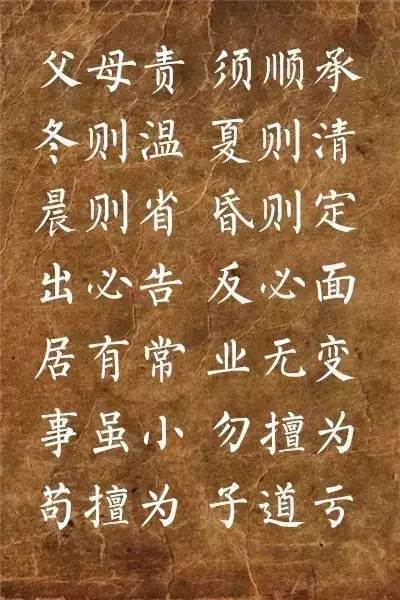 父母责 须顺承
冬则温 夏则清
晨则省 昏则定
出必告 反必面
居有常 业无变
事虽小 勿擅为
苟擅为 子道亏